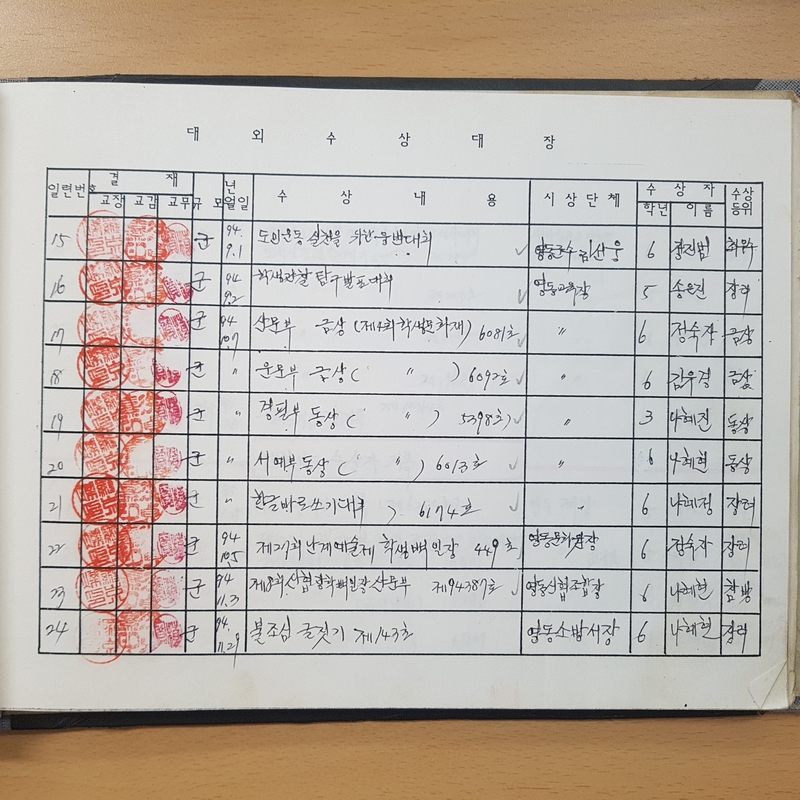 대 외 수 상 대 장
일련번호 결 재 규모 년월일 수 상 내 용 시상단체 수 상 자 수상등위
교장 교감 교무 학년 이름
15 군 94. 9.1 도민운동 실천을 위한 웅변대회 영동군수 6 최우수
16 군 94 9.2 학생관찰 탐구발표대회 영동교육장 5 송은진 장려
17 군 94 10.7 산문부 금상 (제4회 학생문화재) 6081호 〃 6 정숙자 금상
18 군 〃 운문부 금상 ( 〃 ) 6092호 〃 6 김우경 금상
19 군 〃 경필부 동상 ( 〃 ) 5398호 〃 3 나혜진 동상
20 군 〃 서예부 동상 ( 〃 ) 6013호 〃 6 나혜현 동상
21 군 〃 한글바로쓰기대회 ) 6174호 〃 6 장려
22 군 94 10.5 제27회 난계예술제 학생백일장 449호 영동문화원장 6 정숙자 장려
23 군 94 11.3 산문부 제94387호 영동신협조합장 6 나혜현 참방
24 군 94. 11.29 불조심 글짓기 제143호 영동소방서장 6 나혜현 장려